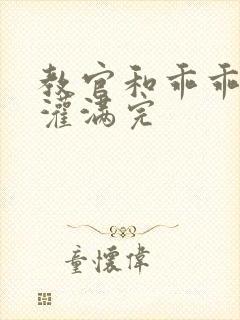 教官和乖乖
灌满完
童懷偉